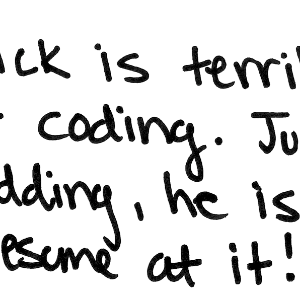 ck is terri
coding. Ju
dding, he is
esome at it!